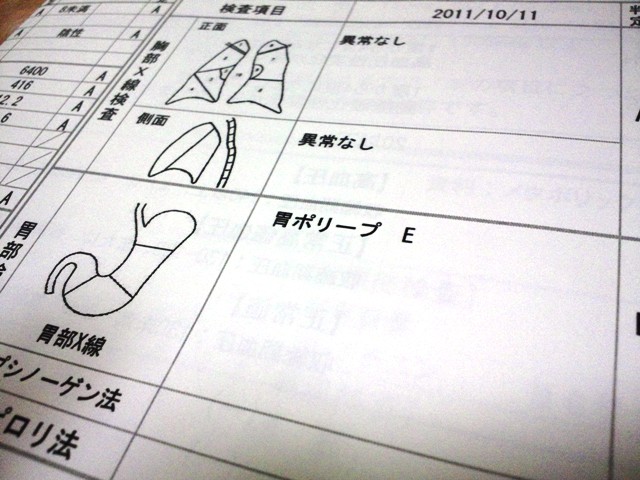 検査項目
2011/10/11
判
定
A
5未満
A
陰性
6400
A
416
A
2.2
A
6
A
A
胸部X線検査
正面
異常なし
側面
異常なし
胃部
胃ポリープ E
胃部X線
プシノーゲン法
ピロリ法